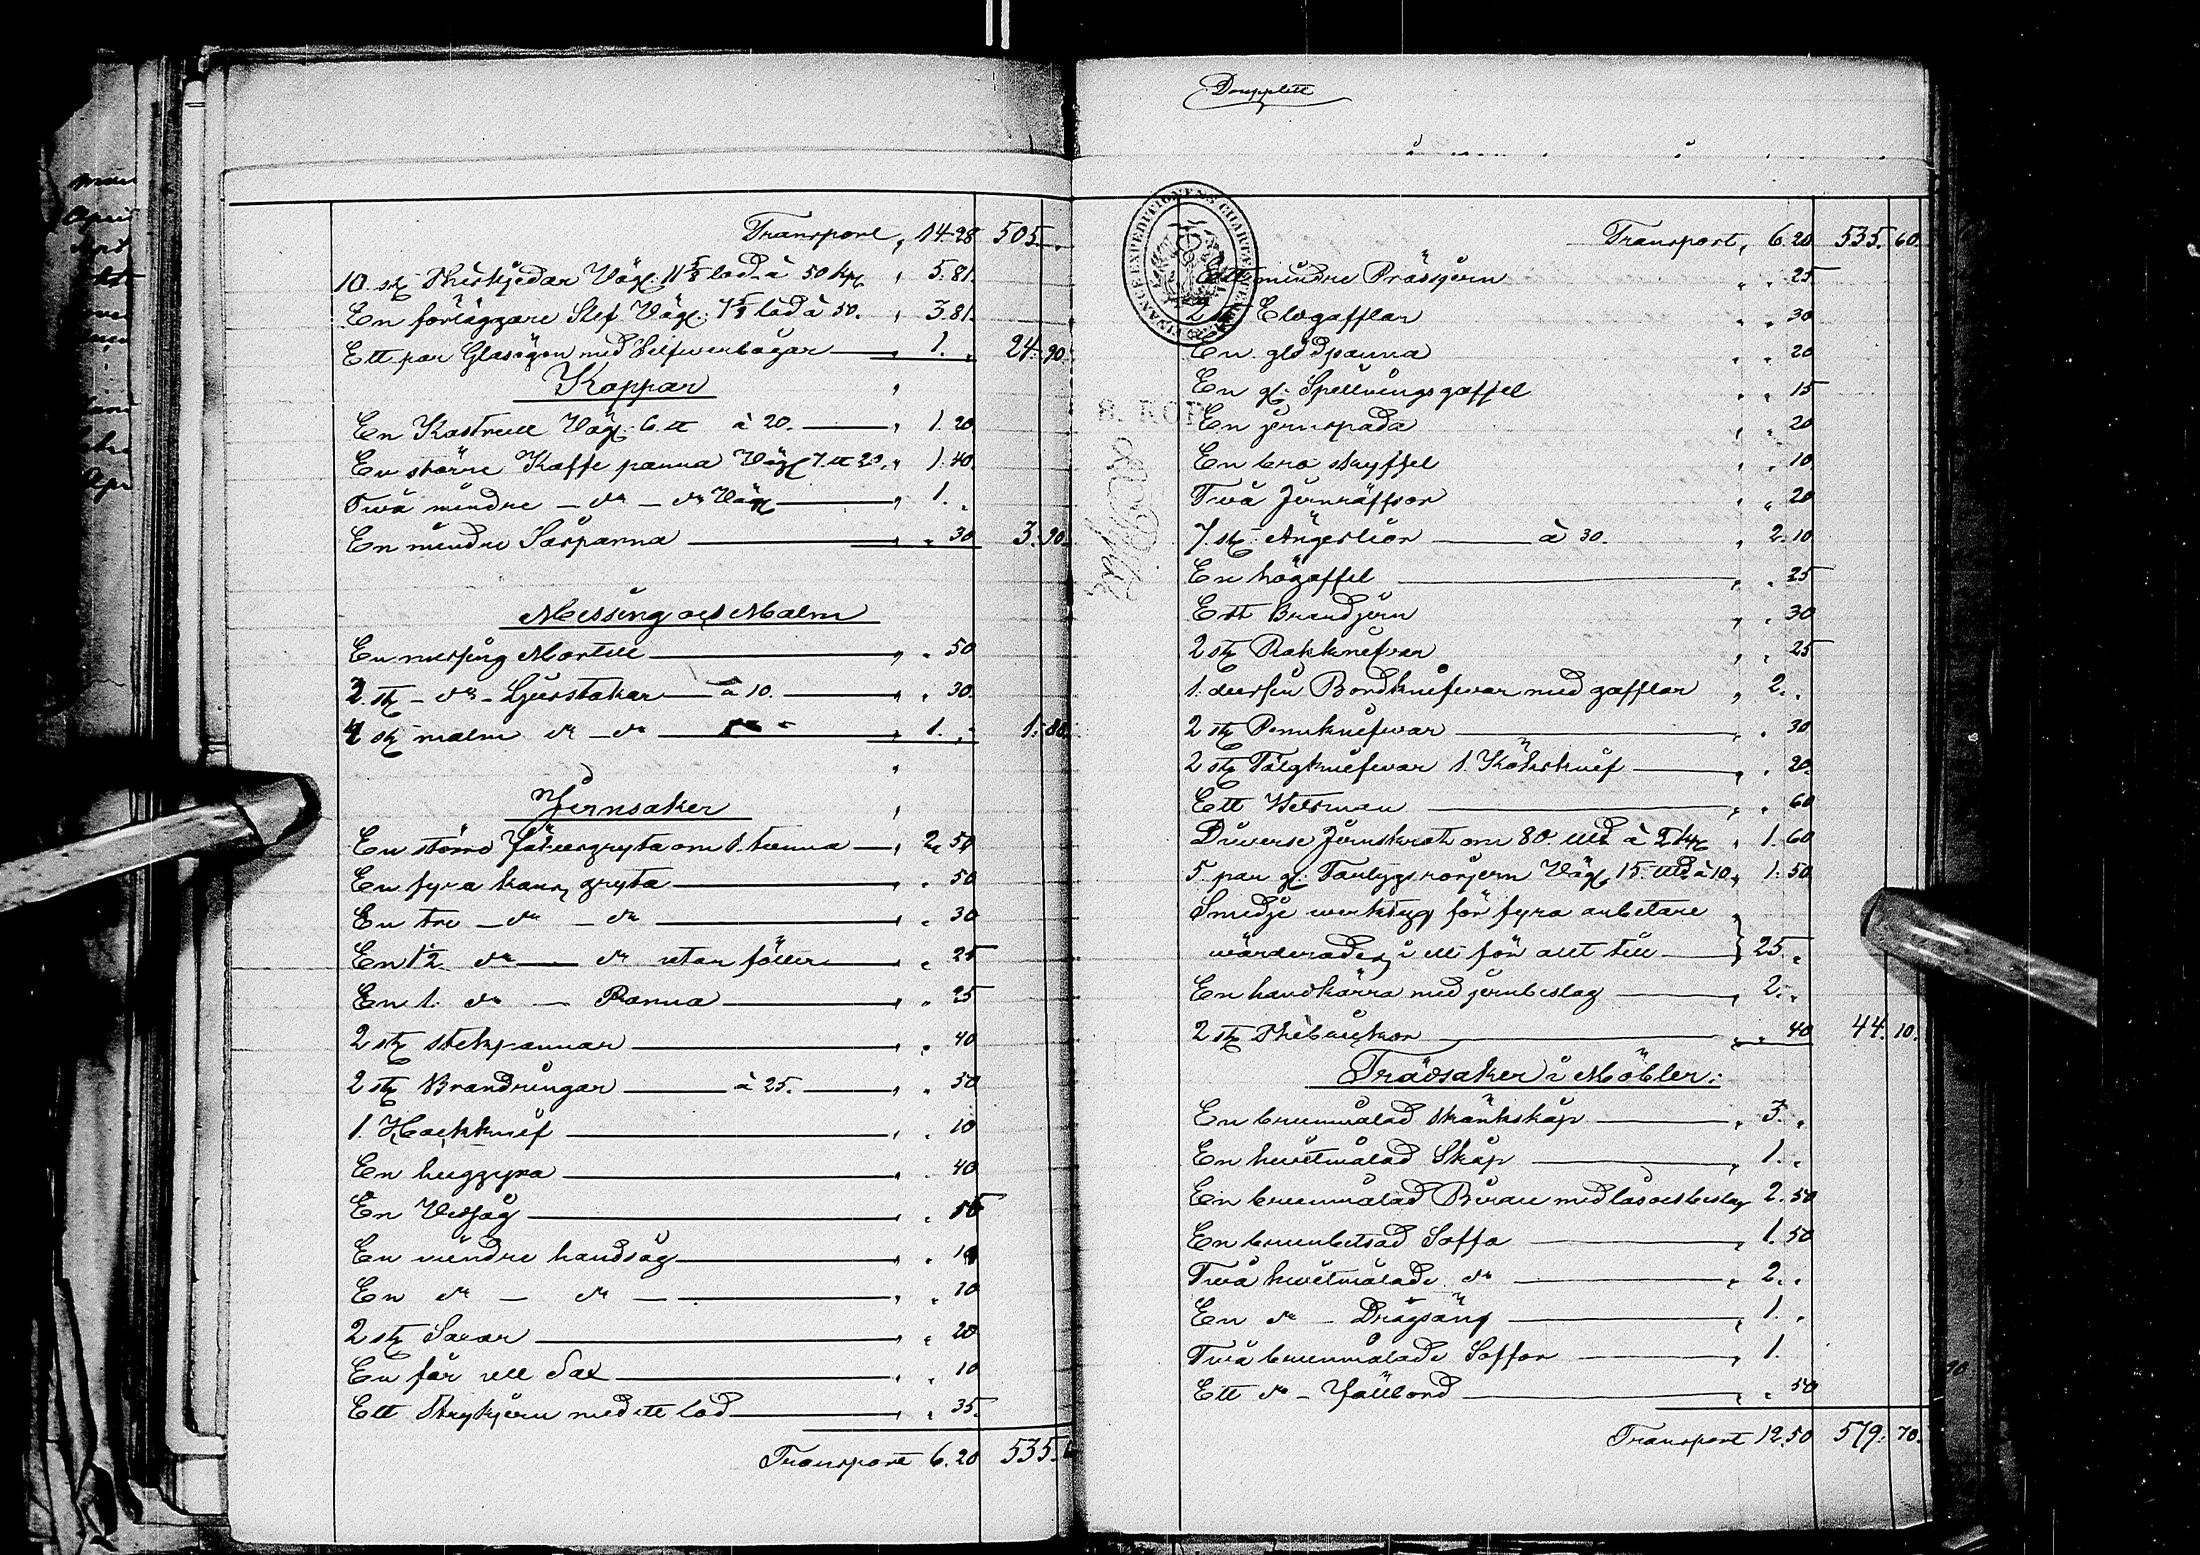 Transport " 14. 28 505. "
10. st. Theskjedar Väg. 11 5/8 lod. à 50 " 5. 81.
En förläggare Slef Väg. 7 5/8 lod à 50. " 3. 81.
Ett par Glasögon med Silfwerbågar " 1. " 24. 90.
Koppar
En Kastrull Väg. 6. tt à 20. " 1. 20.
En större Kaffe panna Väg. 7. tt 20. " 1. 40.
Två mindre - do - do Väg " 1. "
En mindre Såspanna " " 30 3. 90.
Messing och Malm
En messing Mortel " " 50
2. st. - do - Ljusstakar à 10. " " 30.
4 st. malm do - do " 1. " 1. 80.
Jernsaker
En större fä gryta om 1. tunna " 2. 50
En fyra kann gryta " " 50
En tre - do - do " " 30
En 1 1/2. do - do utan fötter " " 25
En 1. do - Panna " " 25
2 st. stekpannor " " 40
2 st. Brandringar à 25. " " 50
1. Hackknif " " 10
En huggyxa " " 40
En Vedsåg " "
En mindre handsåg " " 10
En do - do - " " 10
2 st. Saxar " " 20
En får ull Sax " " 10
Ett Strykjern med ett lod " " 35.
Transport 6. 20 535.
Doupplett
FINANCE EXPEDITIONENS CHARTÆ
8.
Transport " 6. 20 535. 60.
Ett mindre " " 25
2 st. Eldgafflar " " 30
En glödpanna " " 20
En gl. Spellningsgaffel " " 15
En jernspada " " 20
En bra skyffel " " 10
Två Jernräffsor " " 20
7. st. Ängesliör à 30. " 2. 10
En högaffel " " 25
Ett Brandjern " " 30
2 st. Rakknifvar " " 25
1. dussin Bordknifwar med gafflar " 2. "
2 st. Pennknifwar " " 30
2 st. Täljknifwar 1. Kökskníf " " 20.
Ett Betsman " " 60
Diverse Jernskrot om 80. à 2 " 1. 60
5. par gl. Väg. 15. à 10 " 1. 50
Smedje werktyg för fyra arbetare
wärderades i ett för allt till } 25. "
En handkärra med jernbeslag " 2. "
2 st. Thebrickor " " 40 44. 10.
Trädsaker i Möbler:
En brunmålad Skänkskåp " 3. "
En hwitmålad Skåp " 1. "
En brunmålad Birau med lås och beslag 2. 50
En brunbetsad Soffa " 1. 50
Två hwitmålade do " 2. "
En do - Dragsäng " 1. "
Två brunmålade Soffor " 1.
Ett do - Fällbord " " 50
Transport 12. 50 579. 70.